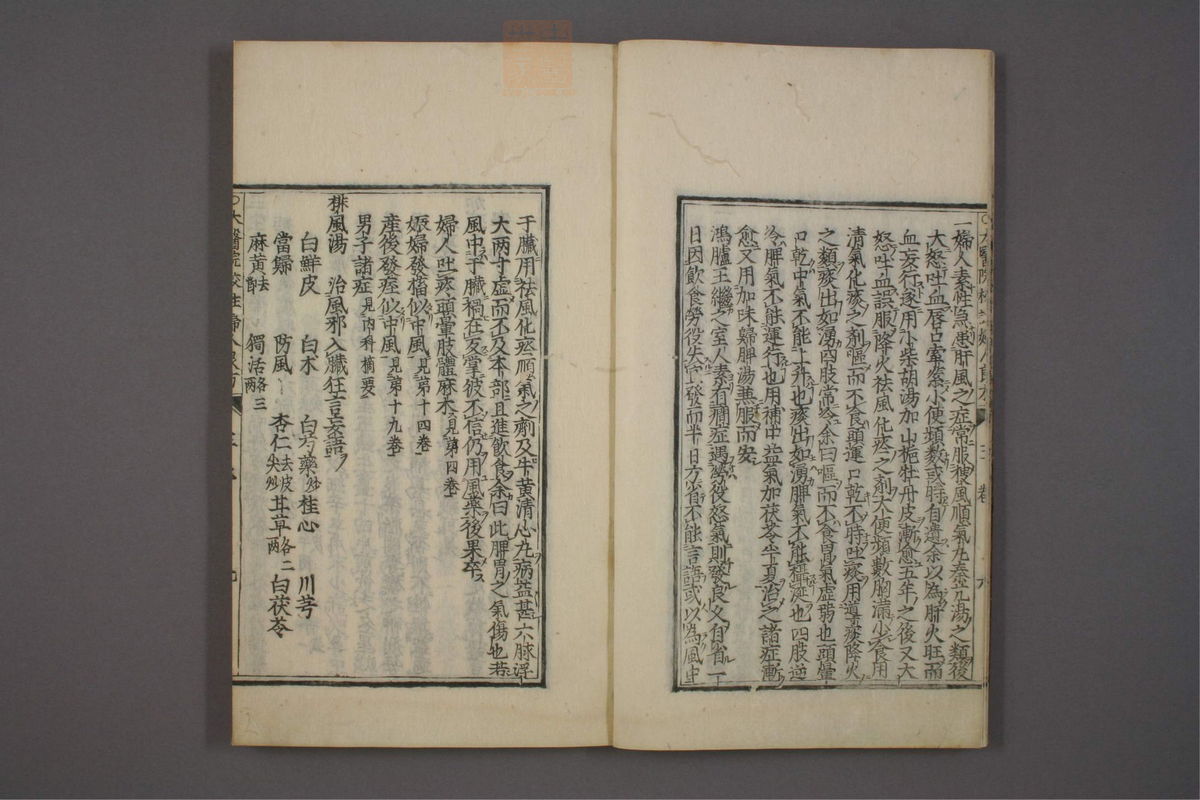 一婦人素性急患肝風之症常服搜風順氣丸秦艽湯之類後
大怒吐血唇口牽緊小便頻數或時自遺余以為肝火旺而
血妄行遂用小柴胡湯加山梔牡丹皮漸愈五年之後又大
怒吐血誤服降火祛風化痰之劑大便頻數胸滿少食用
清氣化痰之劑嘔而不食頭運口乾不時吐痰用導痰降火
之類痰出如湧四肢常冷余曰嘔而不食胃氣虛弱也頭暈
口乾中氣不能上升也痰出如湧脾氣不能攝涎也四肢逆
冷脾氣不能運行也用補中益氣加茯苓半夏治之諸症漸
愈又用加味歸脾湯兼服而安
鴻臚王繼之室人素有癇症遇勞役怒氣則發良久自省一
日因飲食勞役失宜發而半日方省不能言語或以為風中
于臟用祛風化痰順氣之劑及牛黃清心丸病益甚六脉浮
大两寸虛而不及本部且進飲食余曰此脾胃之氣傷也若
風中于臟禍在反掌彼不信仍用風藥後果卒
婦人吐痰頭暈肢體麻木見第四卷
娠婦發搐似中風見第十四卷
産後發痙似中風見第十九卷
男子諸症見内科摘要
排風湯 治風邪入臟狂言妄語
白鮮皮 白术 白芍藥炒 桂心 川芎
當歸 防風 杏仁去皮尖炒 甘草各二兩 白茯苓
麻黄去節 獨活各三两